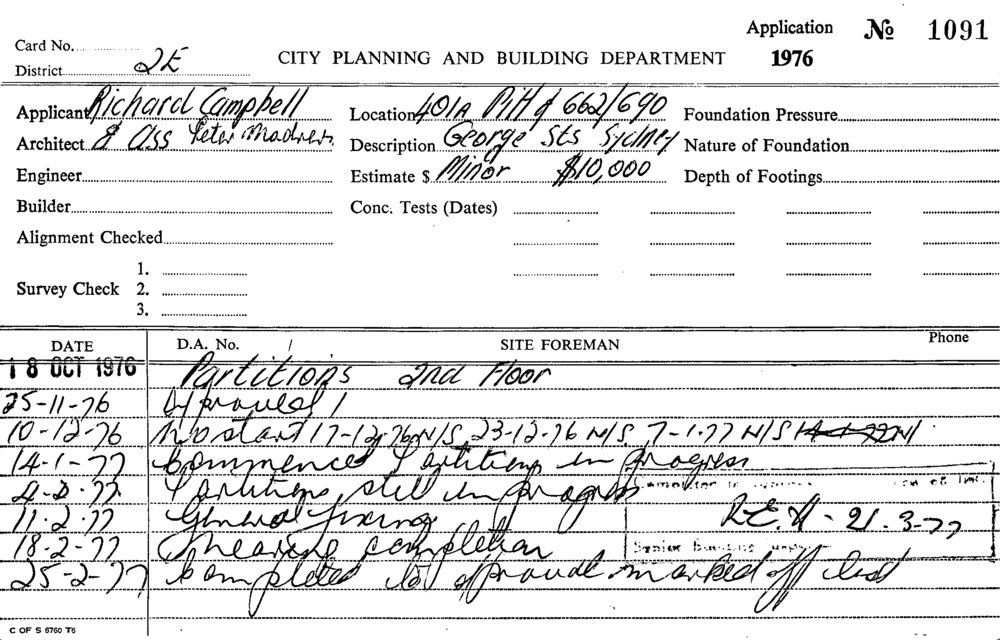 Application № 1091
Card No.
District 2E
CITY PLANNING AND BUILDING DEPARTMENT 1976
Applicant Richard Campbell Location 401A Pitt & 662/690 Foundation Pressure
Architect & Ass Peter Description George Sts Sydney Nature of Foundation
Engineer Estimate $ Minor $10,000 Depth of Footings
Builder Conc. Tests (Dates)
Alignment Checked
1.
Survey Check 2.
3.
DATE D.A. No. / SITE FOREMAN Phone
18 OCT 1976 Partitions 2nd Floor
25-11-76 Approved
10-12-76 No start 17-12-76 N/S 23-12-76 N/S 7-1-77 N/S 14-1-77 N/
14-1-77 Commenced Partitions in progress
4-2-77 Partitions still in progress
11-2-77 General Fixing
R.E.H - 21.3-77
18-2-77 Nearing completion
Senior Building
25-2-77 Completed to approval marked off list
C OF S 6760 T6